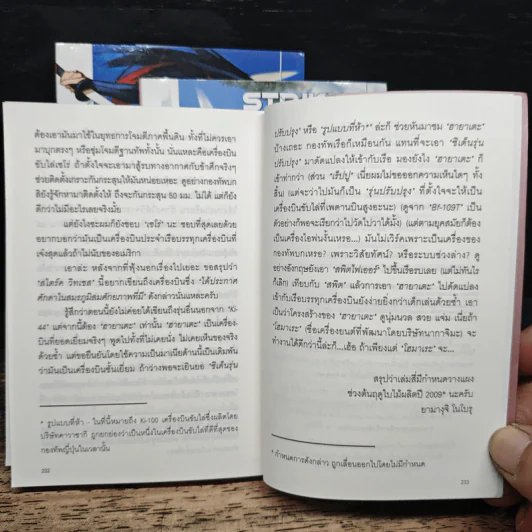 STRIKE
ต้องเอามันมาใช้ในยุทธการโจมตีภาคพื้นดิน ทั้งที่ไม่ควรเอา
มาบุกตรงๆ หรือซุ่มโจมตีฐานทัพทั้งนั้น นั่นแหละคือเครื่องบิน
ขับไล่เซโร่ ถ้าตั้งใจจะเอามาสู้รบทางอากาศกับข้าศึกจริงๆ
ช่วยติดตั้งเกราะกันกระสุนให้มันหน่อยเหอะ ดูอย่างกองทัพบก
สิยังรู้จักหามาติดตั้งให้ ถึงจะกันกระสุน 50 มม. ไม่ได้ แต่ก็ยัง
ดีกว่าไม่มีอะไรเลยจริงมั้ย
แต่ยังไงซะผมก็ยังชอบ 'เซโร่' นะ ชอบที่สุดเลยด้วย
อยากบอกว่ามันเป็นเครื่องบินประจำเรือบรรทุกเครื่องบินที่
เจ๋งสุดแล้วถ้าไม่นับของอเมริกา
เอาล่ะ หลังจากที่ฟุ้งนอกเรื่องไปเยอะ ขอสรุปว่า
'สไตร์ค วิทเชส' นี้อยากเขียนถึงเครื่องบินซึ่ง 'ได้ประกาศ
ศักดาในสมรภูมิสมศักยภาพที่มี' ดังกล่าวนั่นแหละครับ
รู้สึกว่าตอนนี้ยังไม่ค่อยได้เขียนถึงรุ่นอื่นนอกจาก 'Ki-
44' แต่จากนี้ต้อง 'ฮายาเตะ' เท่านั้น 'ฮายาเตะ' เป็นเครื่อง-
บินที่ยอดเยี่ยมจริงๆ พูดไปทั้งที่ไม่เคยนั่ง ไม่เคยเห็นของจริง
ด้วยซ้ำ แต่ขอยืนยันโดยใช้ความเป็นมาเนียด้านนี้เป็นเดิมพัน
ว่ามันเป็นเครื่องบินชั้นเยี่ยม ถ้าว่างพอจะเอินยอ 'ชิเด็นรุ่น
* รูปแบบที่ห้า - ในที่นี้หมายถึง Ki-100 เครื่องบินขับไล่ซึ่งผลิตโดย
บริษัทคาวาซากิ ถูกยกย่องว่าเป็นหนึ่งในเครื่องบินขับไล่ที่ดีที่สุดของ
กองทัพญี่ปุ่นในเวลานั้น
232
ปรับปรุง' หรือ 'รูปแบบที่ห้า*' ล่ะก็ ช่วยหันมาชม 'ฮายาเตะ'
บ้างเถอะ กองทัพเรือก็เหมือนกัน แทนที่จะเอา 'ชิเด็นรุ่น
ปรับปรุง' มาดัดแปลงให้เข้ากับเรือ มองยังไง 'ฮายาเตะ' ก็
เข้าท่ากว่า (ส่วน 'เร็ปปู' เนี่ยผมไม่ขอออกความเห็นใดๆ ทั้ง
สิ้น) (แต่จะว่าไปมันก็เป็น 'รุ่นปรับปรุง' ที่ตั้งใจจะให้เป็น
เครื่องบินขับไล่ที่เพดานบินสูงอะนะ) (ดูจาก 'Bf-109T' เป็น
ตัวอย่างก็พอจะเรียกว่าไปวัดไปวาได้มั้ง) (แต่ตามยุคสมัยก็ต้อง
เป็นเครื่องไอพ่นงั้นเหรอ...) มันไม่เวิร์คเพราะเป็นเครื่องของ
กองทัพบกเหรอ? เพราะวิสัยทัศน์? หรือระบบช่วงล่าง? ดู
อย่างอังกฤษยังเอา 'สพิตไฟเออร์' ไปขึ้นเรือรบเลย (แต่ไม่ทันไร
ก็เลิก) เทียบกับ 'สพิต' แล้วการเอา 'ฮายาเตะ' ไปดัดแปลง
เข้ากับเรือบรรทุกเครื่องบินยังง่ายยิ่งกว่าเด็กเล่นด้วยซ้ำ เอา
เป็นว่าโครงสร้างของ 'ฮายาเตะ' ดูนุ่มนวล สวย แจ่ม เนี่ยถ้า
'โฮมาเระ' (ชื่อเครื่องยนต์ที่พัฒนาโดยบริษัทนากาจิมะ) จะ
ทำงานได้ดีกว่านี้ล่ะก็...เฮ้อ ถ้าเพียงแต่ 'โฮมาเระ' จะ...
สรุปว่าเล่มสี่มีกำหนดวางแผง
ช่วงต้นฤดูใบไม้ผลิตปี 2009* นะครับ
ยามางุจิ โนโบรุ
* กำหนดการดังกล่าว ถูกเลื่อนออกไปโดยไม่มีกำหนด
233